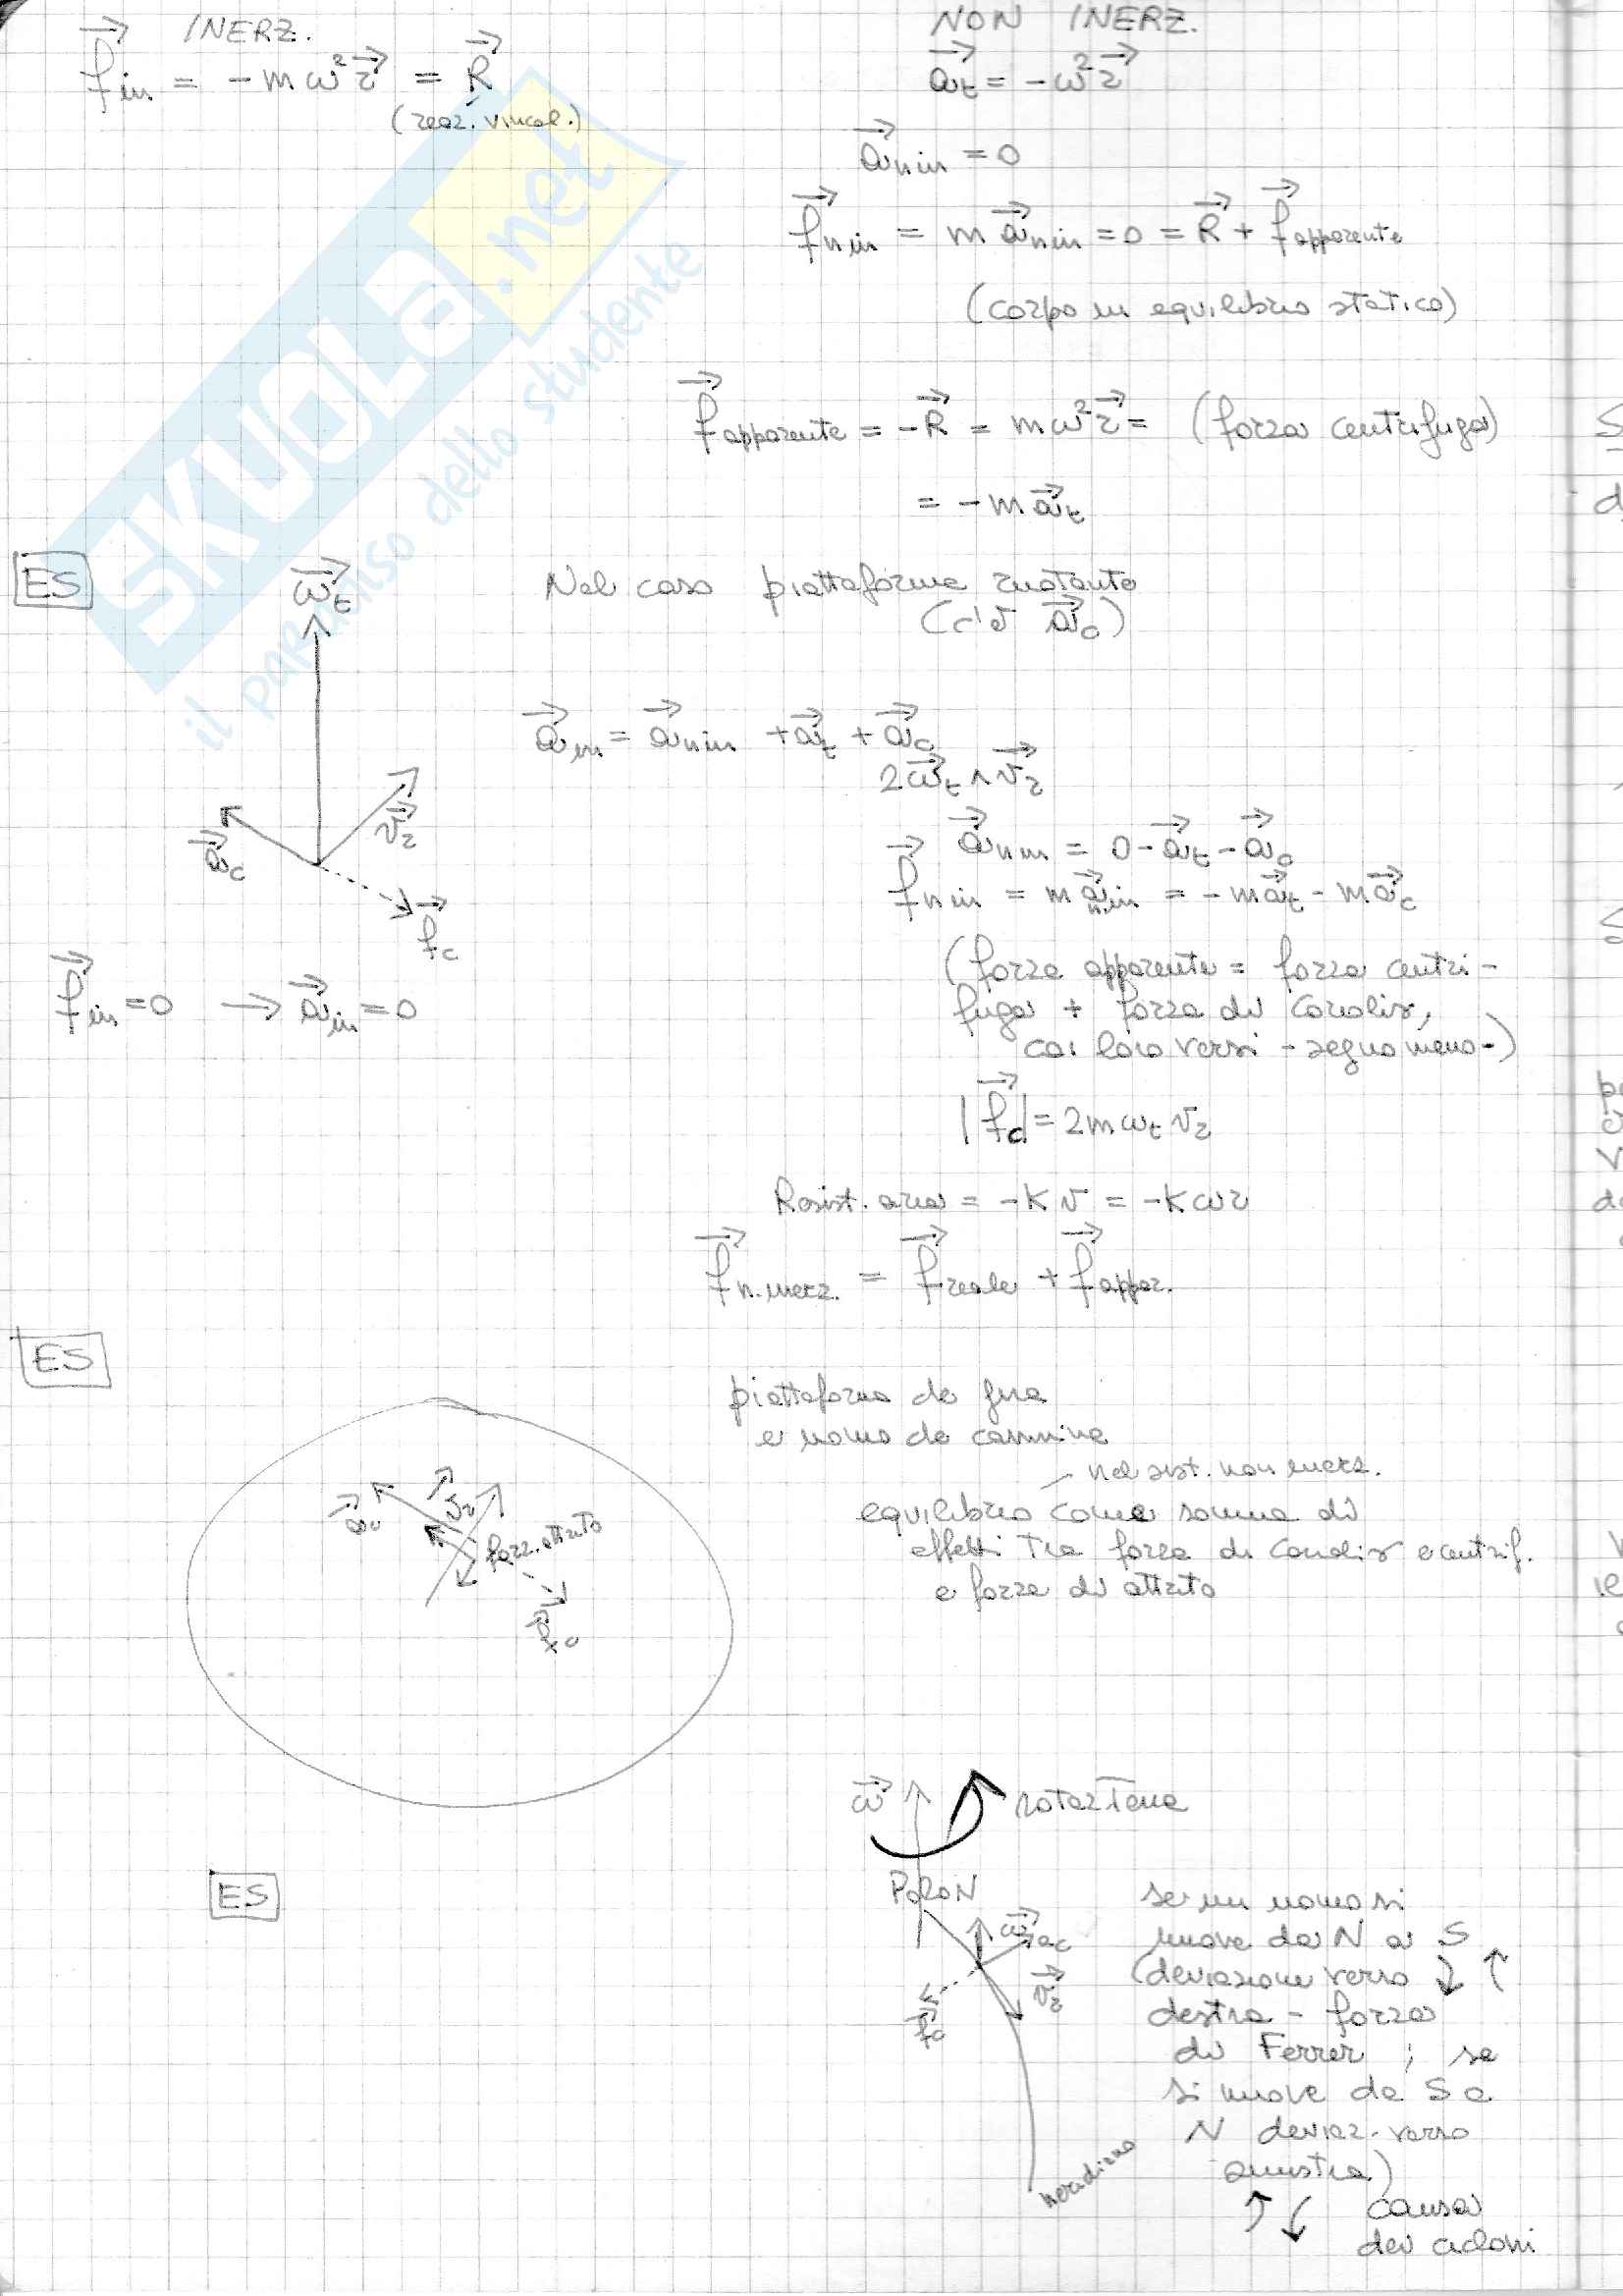 INERZ.
f⃗in = -mω²r⃗ = R⃗
(reaz. vincol.)
NON INERZ.
a⃗t = -ω²r⃗
a⃗nin = 0
f⃗nin = m a⃗nin = 0 = R⃗ + f⃗apparente
(corpo in equilibrio statico)
f⃗apparente = -R⃗ = mω²r⃗ = (forza centrifuga)
= -m a⃗t
SKUOLA.net
il paradiso dello studente
ES
ω⃗t
Nel caso piattaforma ruotante
(c'è a⃗c)
a⃗in = a⃗nin + a⃗t + a⃗c
2ω⃗t ∧ v⃗r
v⃗r
a⃗c
f⃗c
a⃗nin = 0 - a⃗t - a⃗c
f⃗nin = m a⃗nin = -m a⃗t - m a⃗c
f⃗in = 0 → a⃗in = 0
(forza apparente = forza centri-
fuga + forza di Coriolis,
coi loro versi - segno meno -)
|f⃗c| = 2mωt vr
Resist. aria = -Kv = -Kωr
f⃗n.inerz. = f⃗reale + f⃗appar.
ES
piattaforma che gira
e uomo che cammina
nel sist. non inerz.
equilibrio come somma di
effetti tra forza di Coriolis e centrif.
e forza di attrito
a⃗c
v⃗r
forz. attrito
f⃗c
ES
ω⃗
rotaz Terra
Polo N
ω⃗
ac
v⃗r
f⃗c
meridiano
se un uomo si
muove da N a S
(deviazione verso ↓ ↑
destra - forza
di Ferrer ; se
si muove da S a
N deviaz. verso
sinistra)
↑ ↓ causa
dei cicloni